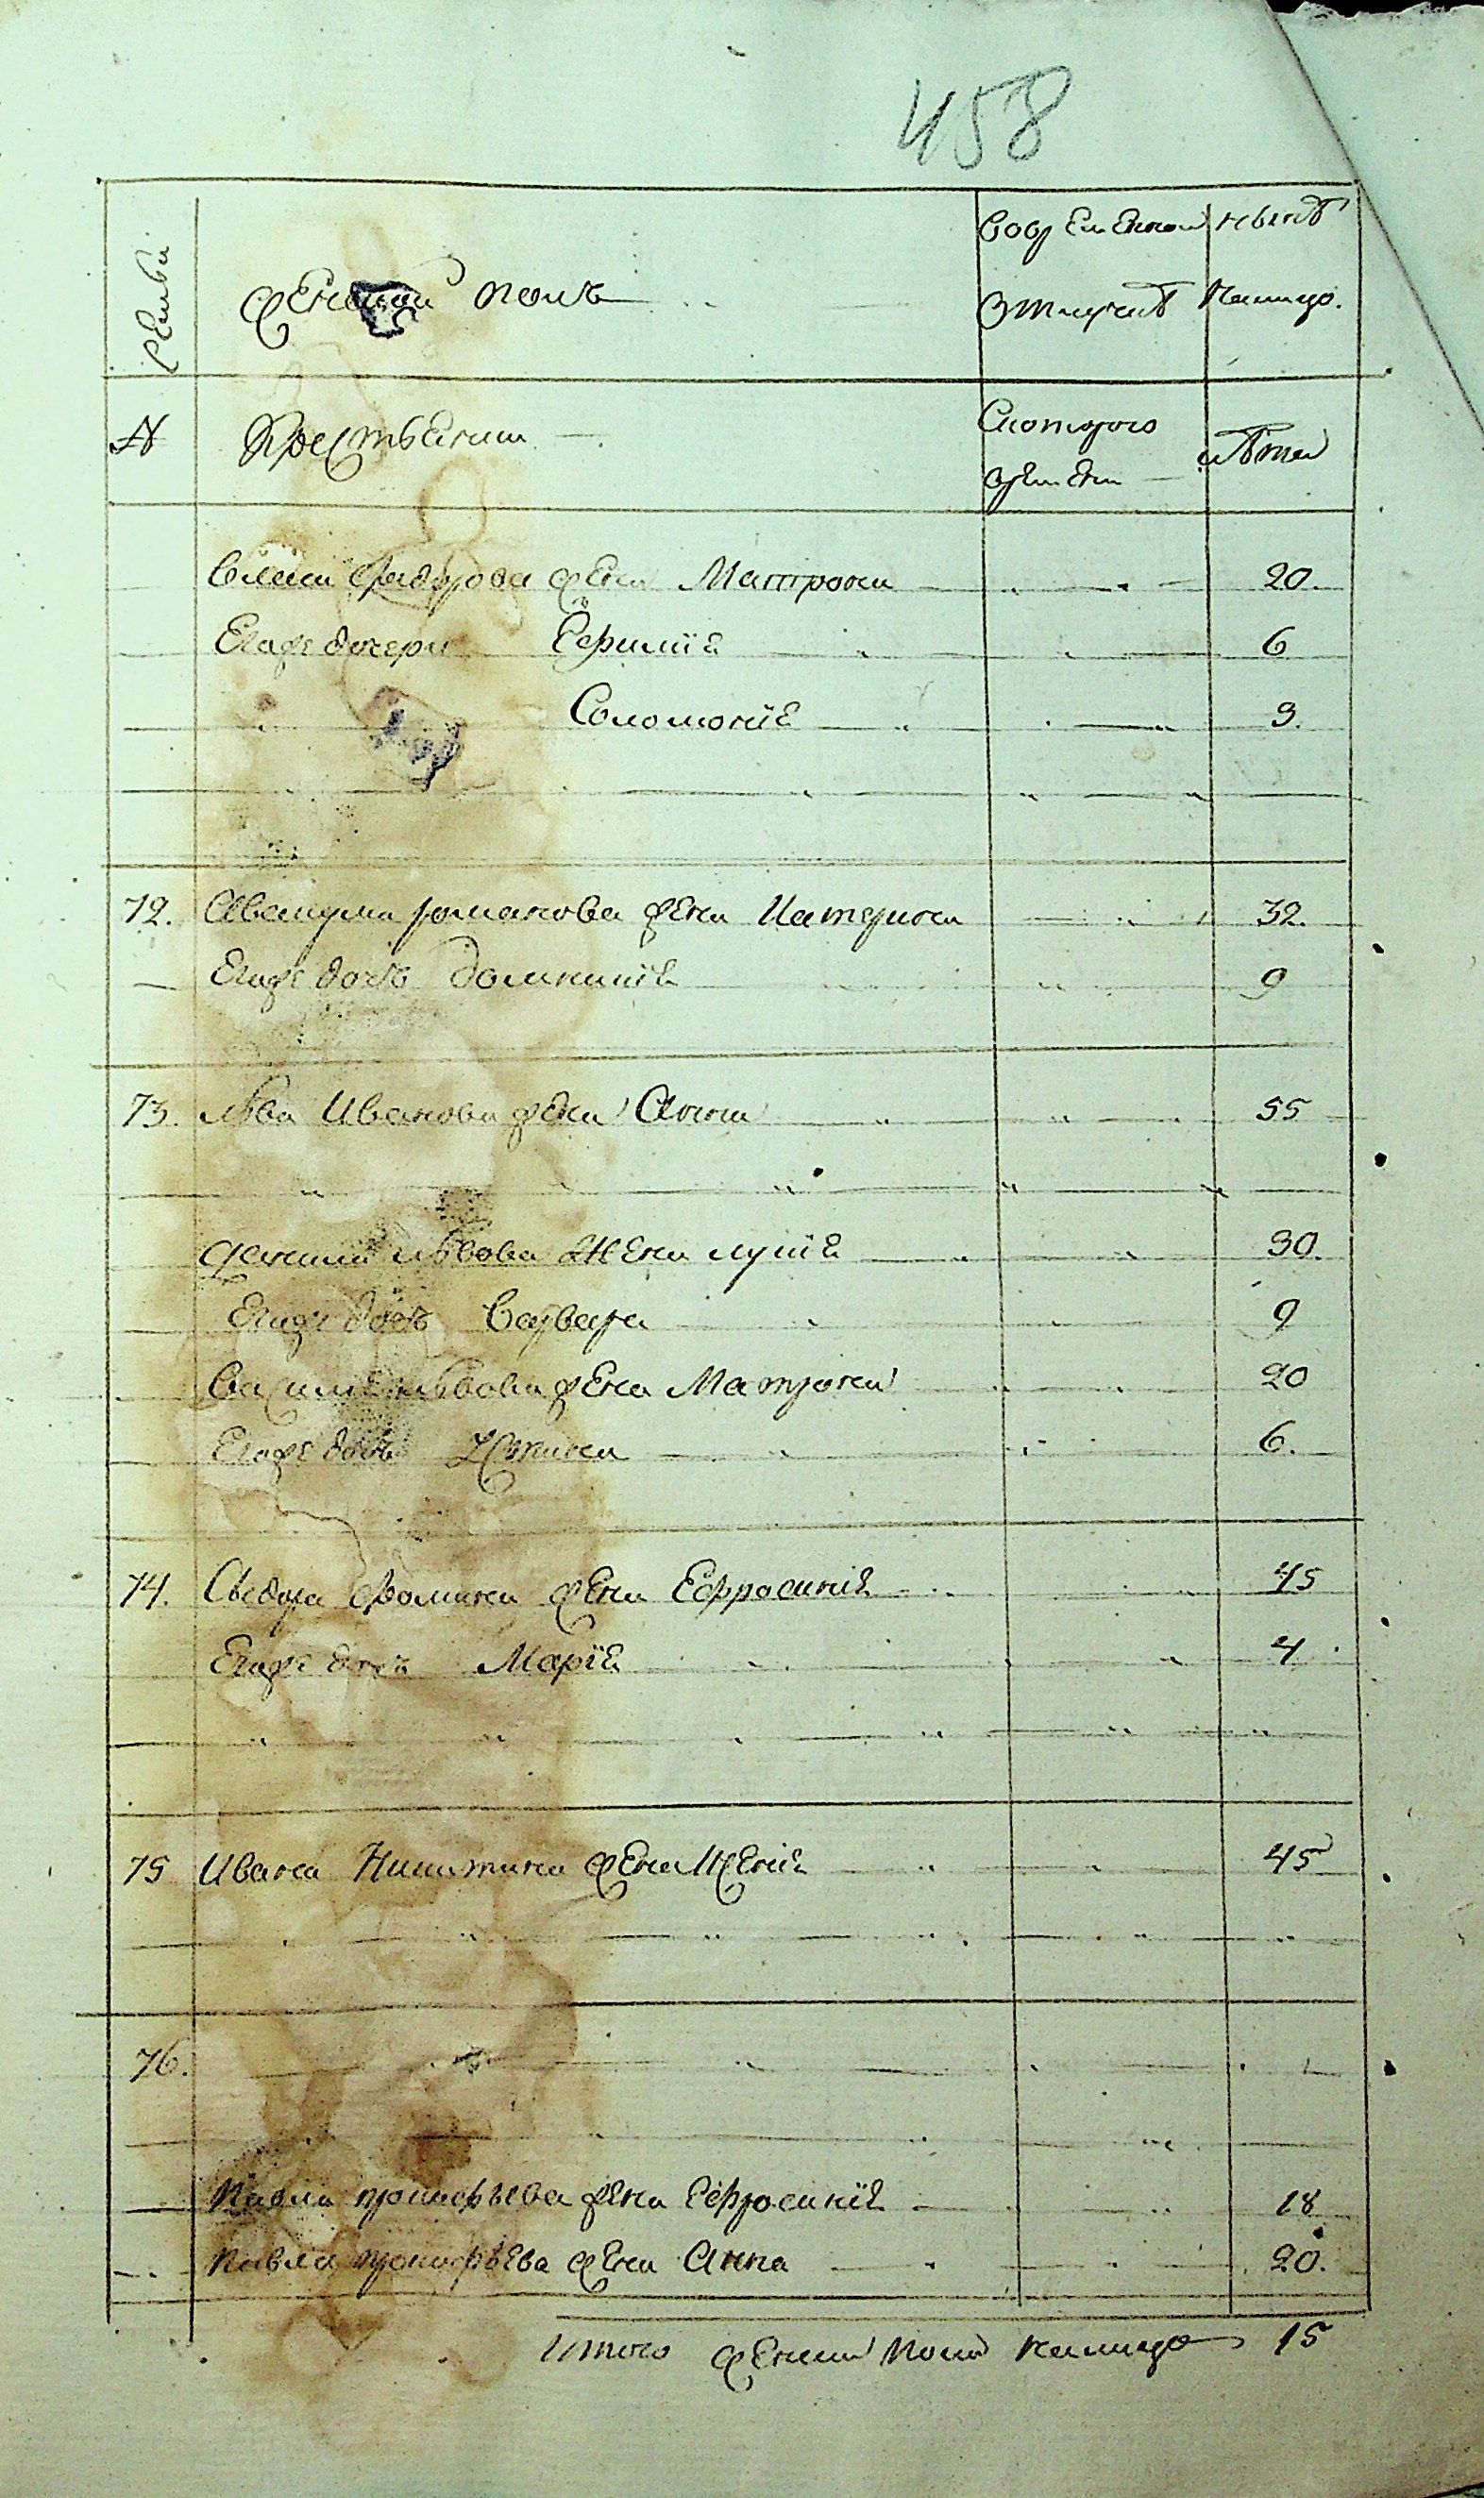 458
семьи
Женской полъ
Во временной отлучкѣ
Нынѣ налицо.
№
Крестьянъ
Скоторого времени
лѣта
Власа Федорова жена Матрона 20.
Егоже дочери Ефимія 6
Соломонія 3.
72. Авакума романова жена Катерина 32.
Егоже дочь домникія 9
73. льва Иванова жена Анна 55
львова жена лукія 30.
Егоже дочь Варвара 9
Василія львова жена Матрона 20
Егоже дочь Устина 6.
74. Сидора Фомина жена Ефросинія 45
Егоже дочь Марія 4
75 Ивана Никитина жена Ксенія 45
76.
Павла прокофьева жена Ефросинія 18
Павла прокофьева жена Анна 20.
Итого женска пола налицо 15